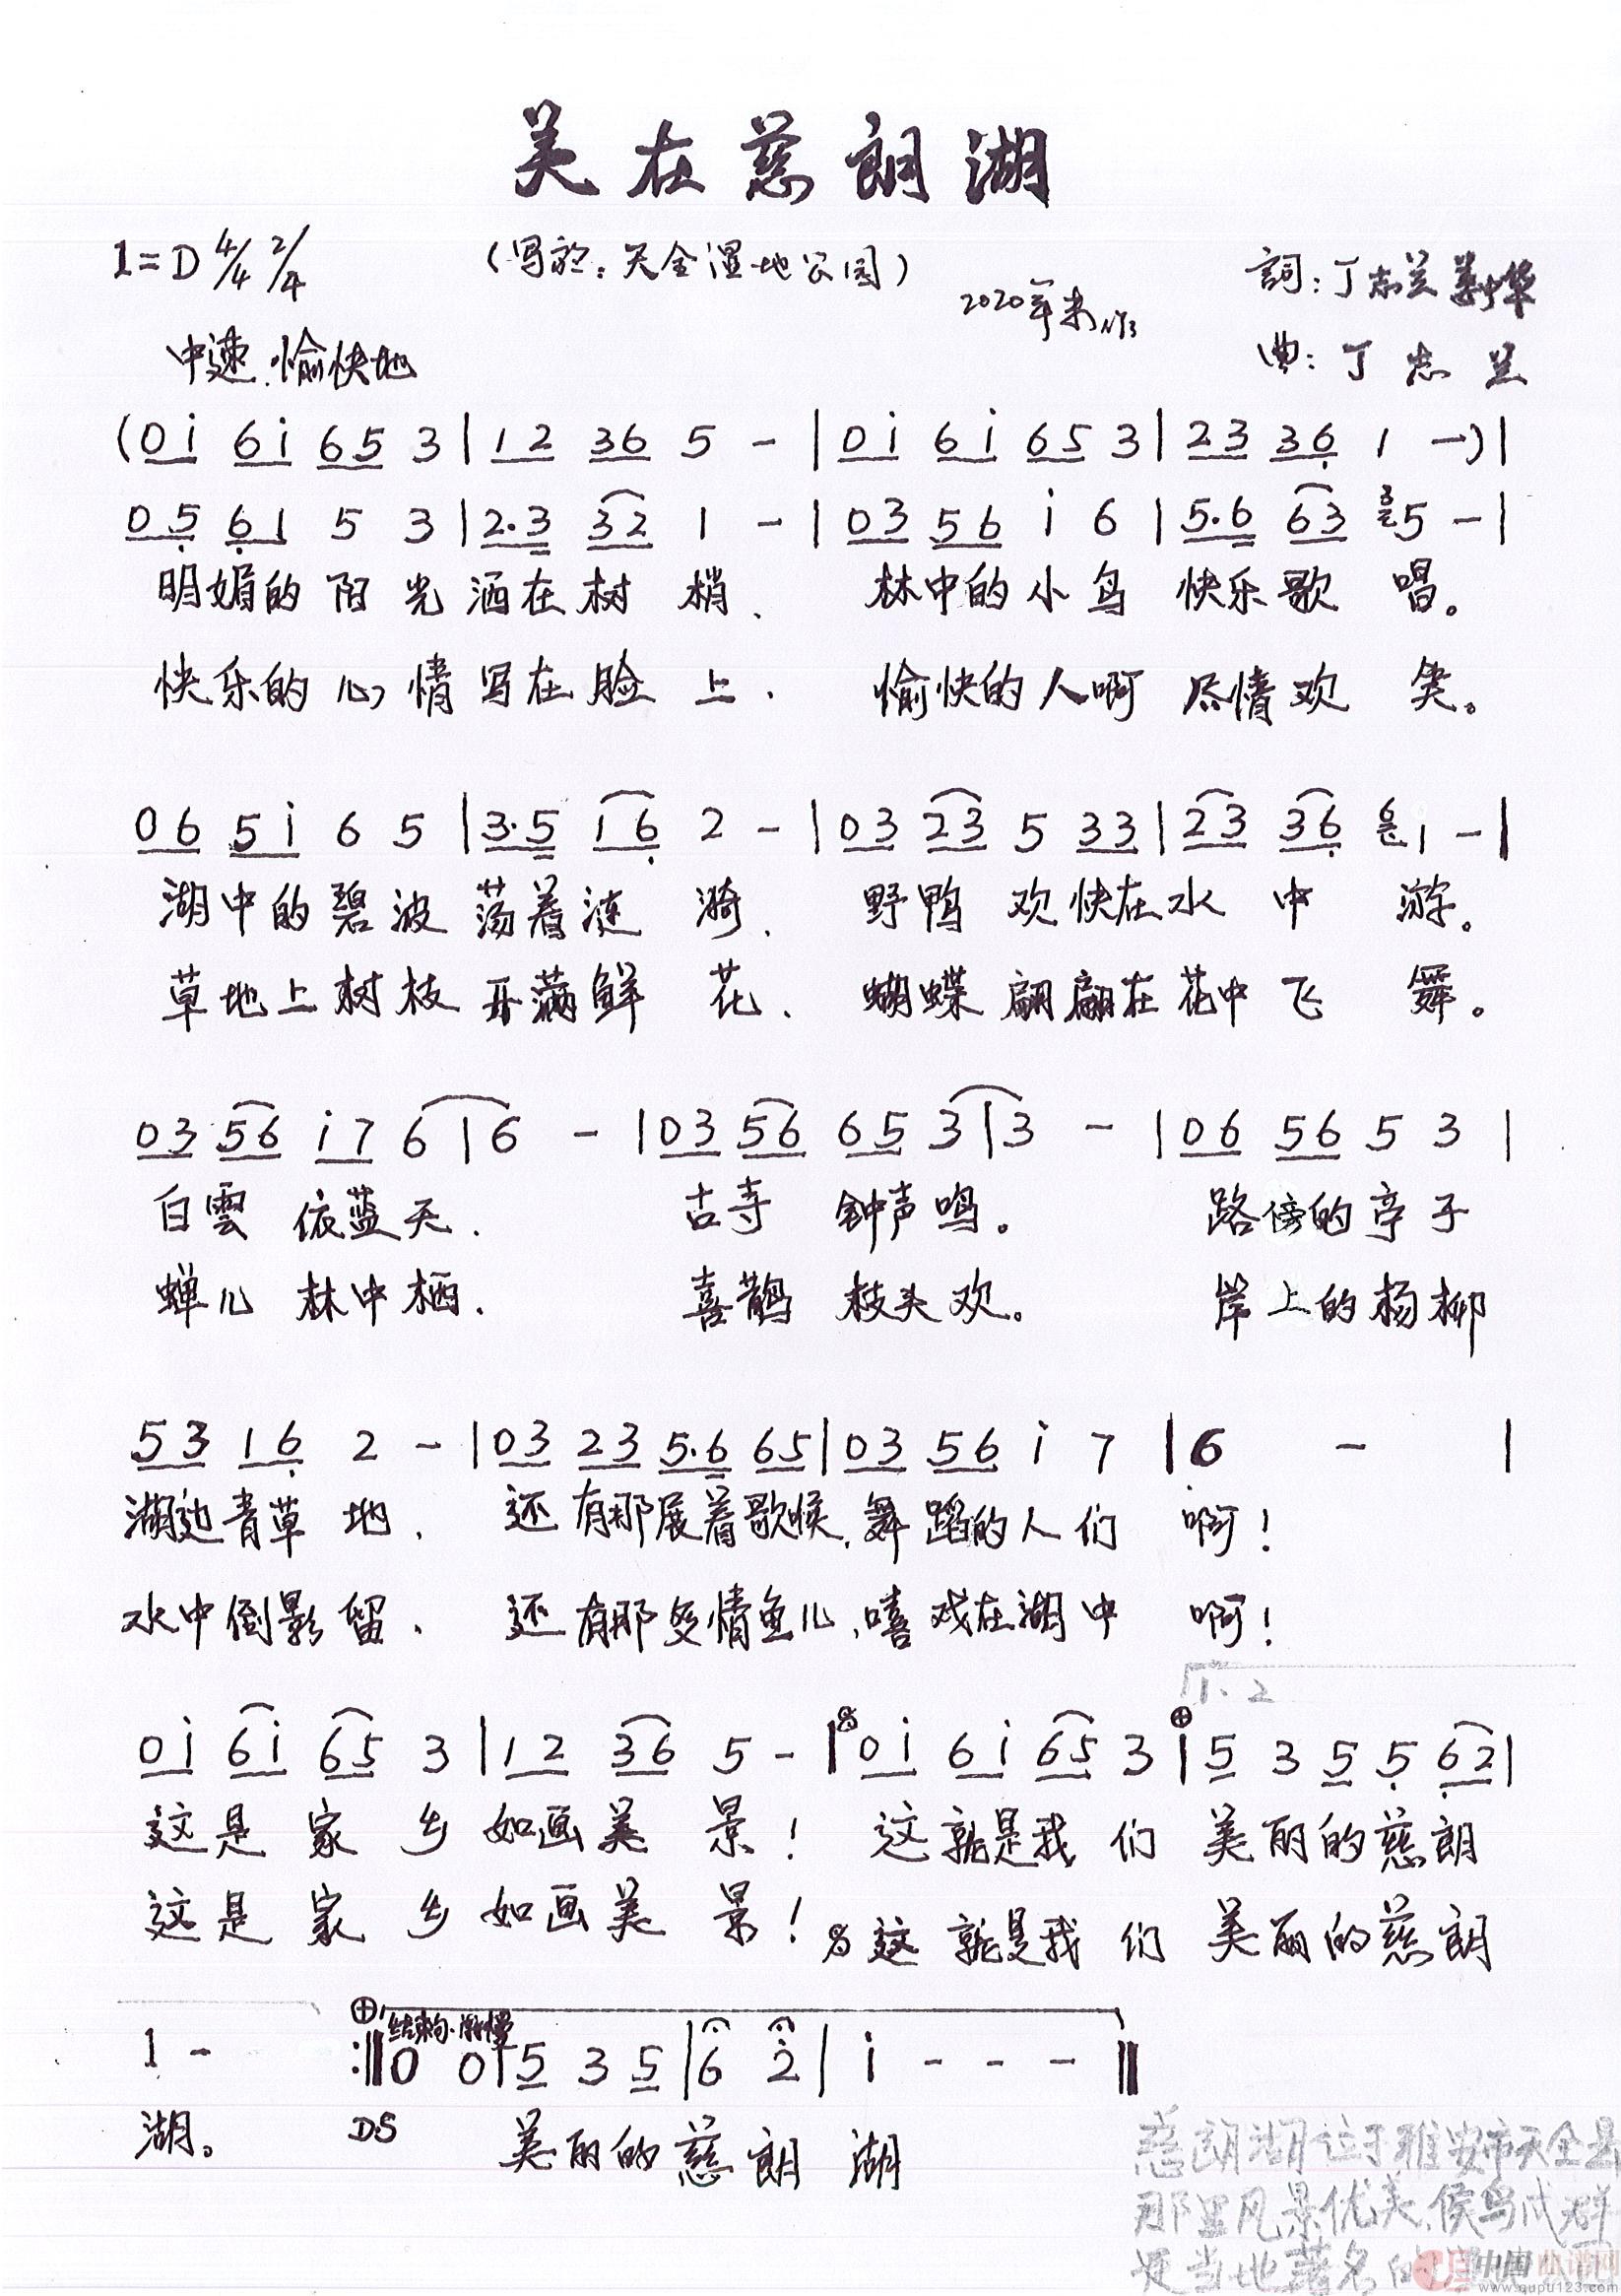 美在慈朗湖
1=D 4/4 2/4
(写於:天全湿地公园)
2020年末作
詞:丁志兰
中速.愉快地
曲:丁志兰
(0i 6i 65 3|12 36 5 -|0i 6i 65 3|23 36 1 -)|
05 61 5 3|2.3 32 1 -|03 56 i 6|5.6 63 5 -|
明媚的阳光洒在树梢、林中的小鸟快乐歌唱。
快乐的心情写在脸上、愉快的人啊尽情欢笑。
06 5i 6 5|3.5 16 2 -|03 23 5 33|23 36 1 -|
湖中的碧波荡着涟漪、野鸭欢快在水中游。
草地上树枝开满鲜花、蝴蝶翩翩在花中飞舞。
03 56 i7 6|6 -|03 56 65 3|3 -|06 56 5 3|
白雲依蓝天、古寺钟声鸣。路傍的亭子
蝉儿林中栖、喜鹊枝头欢。岸上的杨柳
53 16 2 -|03 23 5.6 65|03 56 i 7|6 -|
湖边青草地、还有那展着歌喉、舞蹈的人们啊!
水中倒影留、还有那多情鱼儿、嘻戏在湖中啊!
1、2
0i 6i 65 3|12 36 5 -|0i 6i 65 3|5 3 5 5 62|
这是家乡如画美景!这就是我们美丽的慈朗
这是家乡如画美景!这就是我们美丽的慈朗
结束句.渐慢
1 - :‖0 0|5 3 5|6 2|i - - -‖
湖。DS 美丽的慈朗湖
慈朗湖位于雅安市天全县
那里风景优美,侯鸟成群
是当地著名的
中国曲谱网
www.qupu123.com